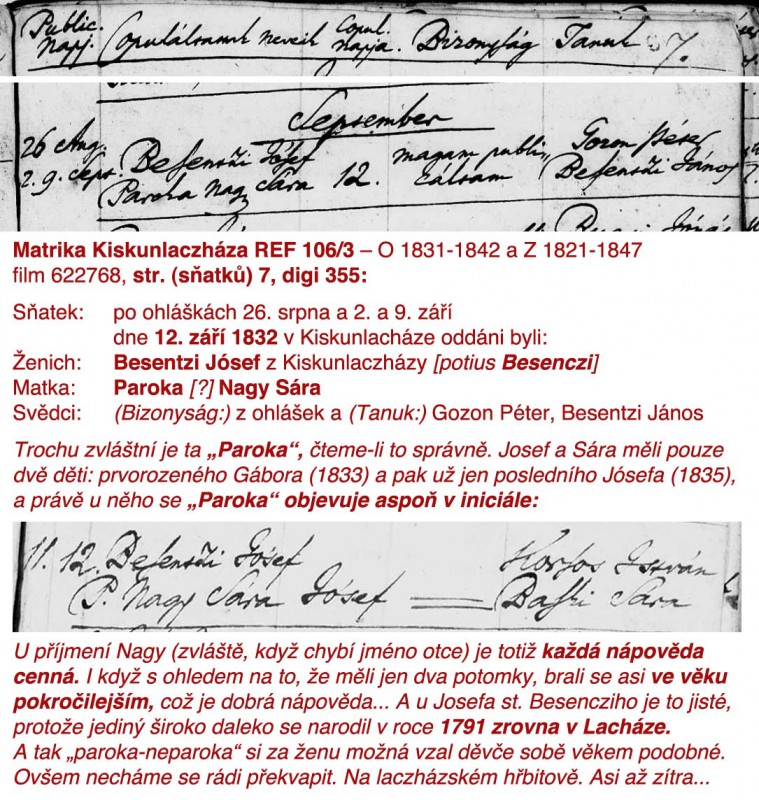 Public. Copuláltatnak neveik Copul. Bizonyság Tanuk 7.
Napj. napja.
September
26 Aug. Besentzi Jósef magam publi Gozon Péter
2. 9. Sept. Paroka Nagy Sára 12. cáltam Besentzi János
Matrika Kiskunlaczháza REF 106/3 – O 1831-1842 a Z 1821-1847
film 622768, str. (sňatků) 7, digi 355:
Sňatek: po ohláškách 26. srpna a 2. a 9. září
dne 12. září 1832 v Kiskunlacháze oddáni byli:
Ženich: Besentzi Jósef z Kiskunlaczházy [potius Besenczi]
Matka: Paroka [?] Nagy Sára
Svědci: (Bizonyság:) z ohlášek a (Tanuk:) Gozon Péter, Besentzi János
Trochu zvláštní je ta „Paroka“, čteme-li to správně. Josef a Sára měli pouze
dvě děti: prvorozeného Gábora (1833) a pak už jen posledního Jósefa (1835),
a právě u něho se „Paroka“ objevuje aspoň v iniciále:
11. 12. Besentzi Jósef István
P. Nagy Sára Jósef Sára
U příjmení Nagy (zvláště, když chybí jméno otce) je totiž každá nápověda
cenná. I když s ohledem na to, že měli jen dva potomky, brali se asi ve věku
pokročilejším, což je dobrá nápověda... A u Josefa st. Besencziho je to jisté,
protože jediný široko daleko se narodil v roce 1791 zrovna v Lacháze.
A tak „paroka-neparoka“ si za ženu možná vzal děvče sobě věkem podobné.
Ovšem necháme se rádi překvapit. Na laczházském hřbitově. Asi až zítra...